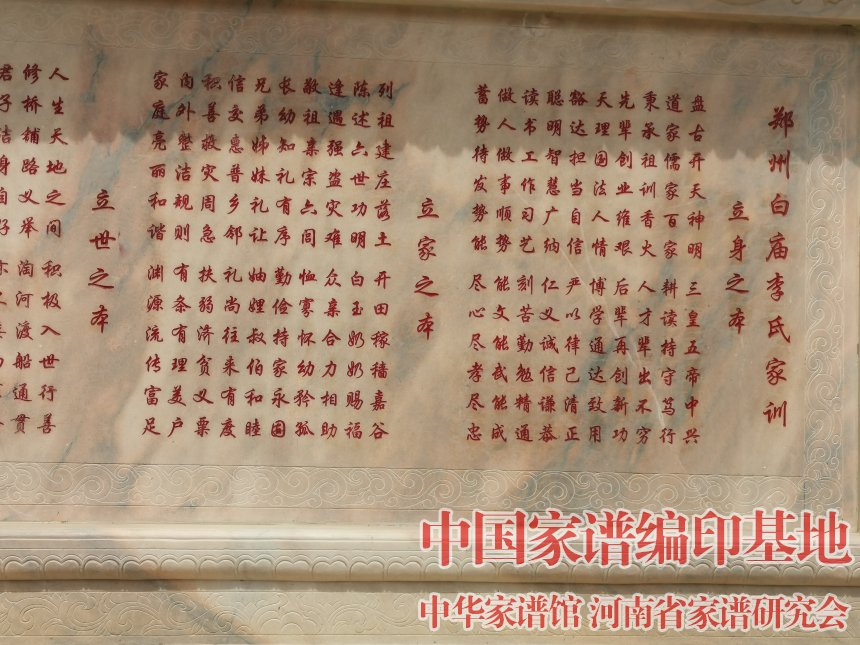 郑州白庙李氏家训
立身之本
盘古开天神明 三皇五帝中兴
道家儒家百家 耕读持守笃行
秉承祖训香火 人才辈出不穷
先辈创业维艰 后辈再创新功
天理国法人情 博学通达致用
豁达担当自信 严以律己清正
聪明智慧广纳 仁义诚信谦恭
读书工作习艺 刻苦勤勉精通
做人做事顺势 能文能武能成
蓄势待发势能 尽心尽孝尽忠
立家之本
列祖建庄落土 开田稼穑嘉谷
陈述六世功明 白玉奶奶赐福
逢遇强盗灾难 众亲合力相助
敬祖亲宗六同 恤寡怀幼矜孤
长幼知礼有序 勤俭持家永固
兄弟姊妹礼让 妯娌叔伯和睦
信交惠普乡邻 礼尚往来有度
积善救灾周急 扶弱济贫义粟
内外整洁规则 有条有理美户
家庭亮丽和谐 渊源流传富足
立世之本
人生天地之间 积极入世行善
修桥铺路义举 淘河渡船通贯
君子洁身自好
中国家谱编印基地
中华家谱馆 河南省家谱研究会